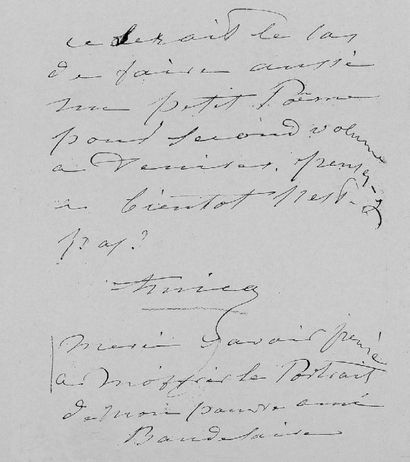 ce serait le cas
de faire aussi
un petit Poëme
pour second volume
a Venises. pensez-y
a bientot n'est-ce
pas?
Amica
Merci d'avoir pensé
a m'offrir le Portrait
de mon pauvre ami
Baudelaire